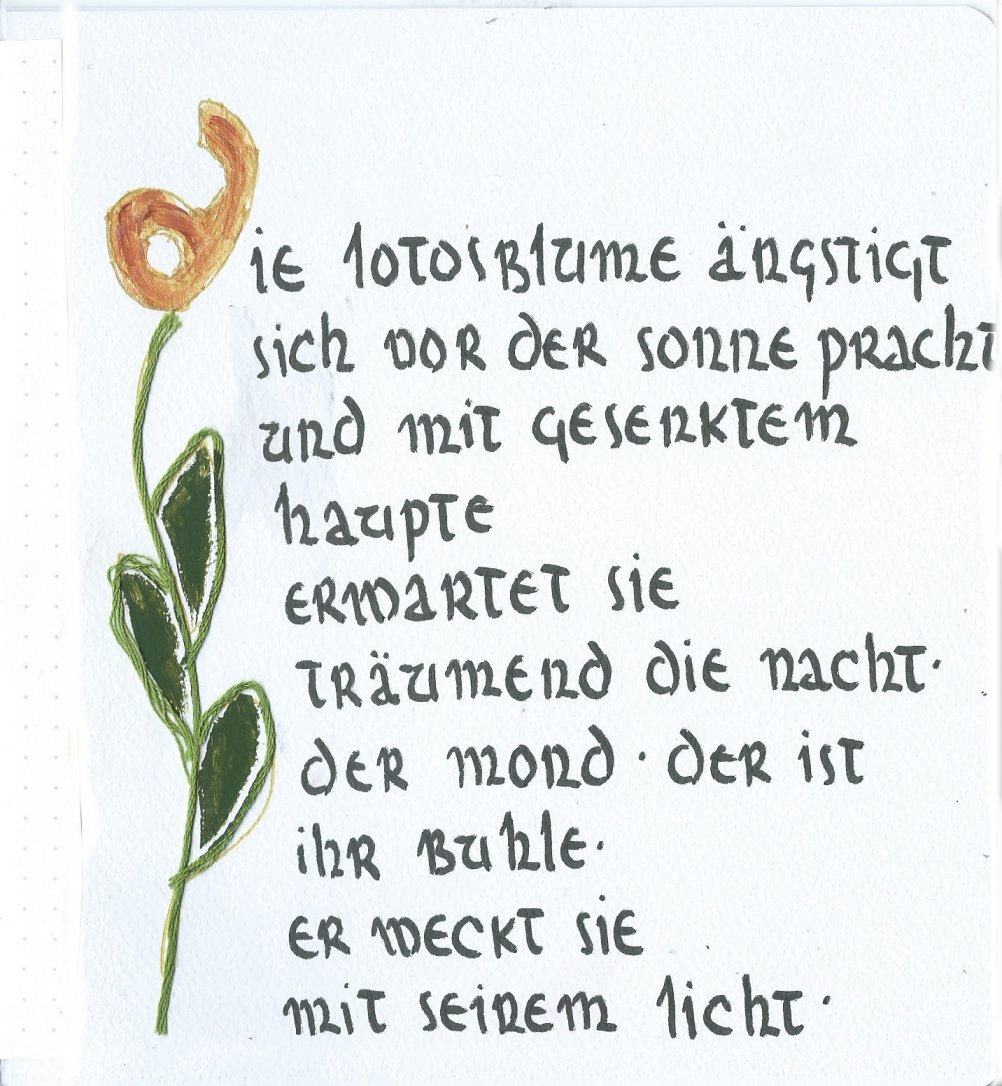 die lotosblume ängstigt
sich vor der sonne pracht
und mit gesenktem
haupte
erwartet sie
träumend die nacht·
der mond · der ist
ihr buhle·
er weckt sie
mit seinem licht·